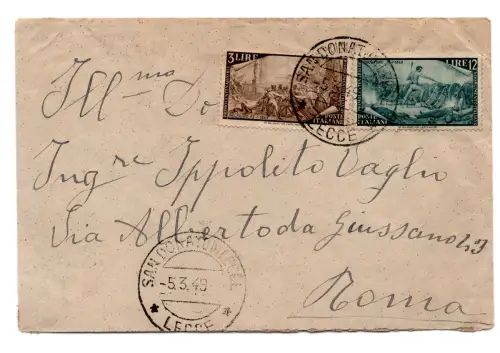 3 LIRE
LIRE 12
POSTE ITALIANE
POSTE ITALIANE
SAN DONATO
LECCE
Ill.mo Do
Ing.re Ippolito Vaglio
Via Alberto da Giussano 23
Roma
SAN DONATO DI LECCE
-5.3.49
* LECCE *